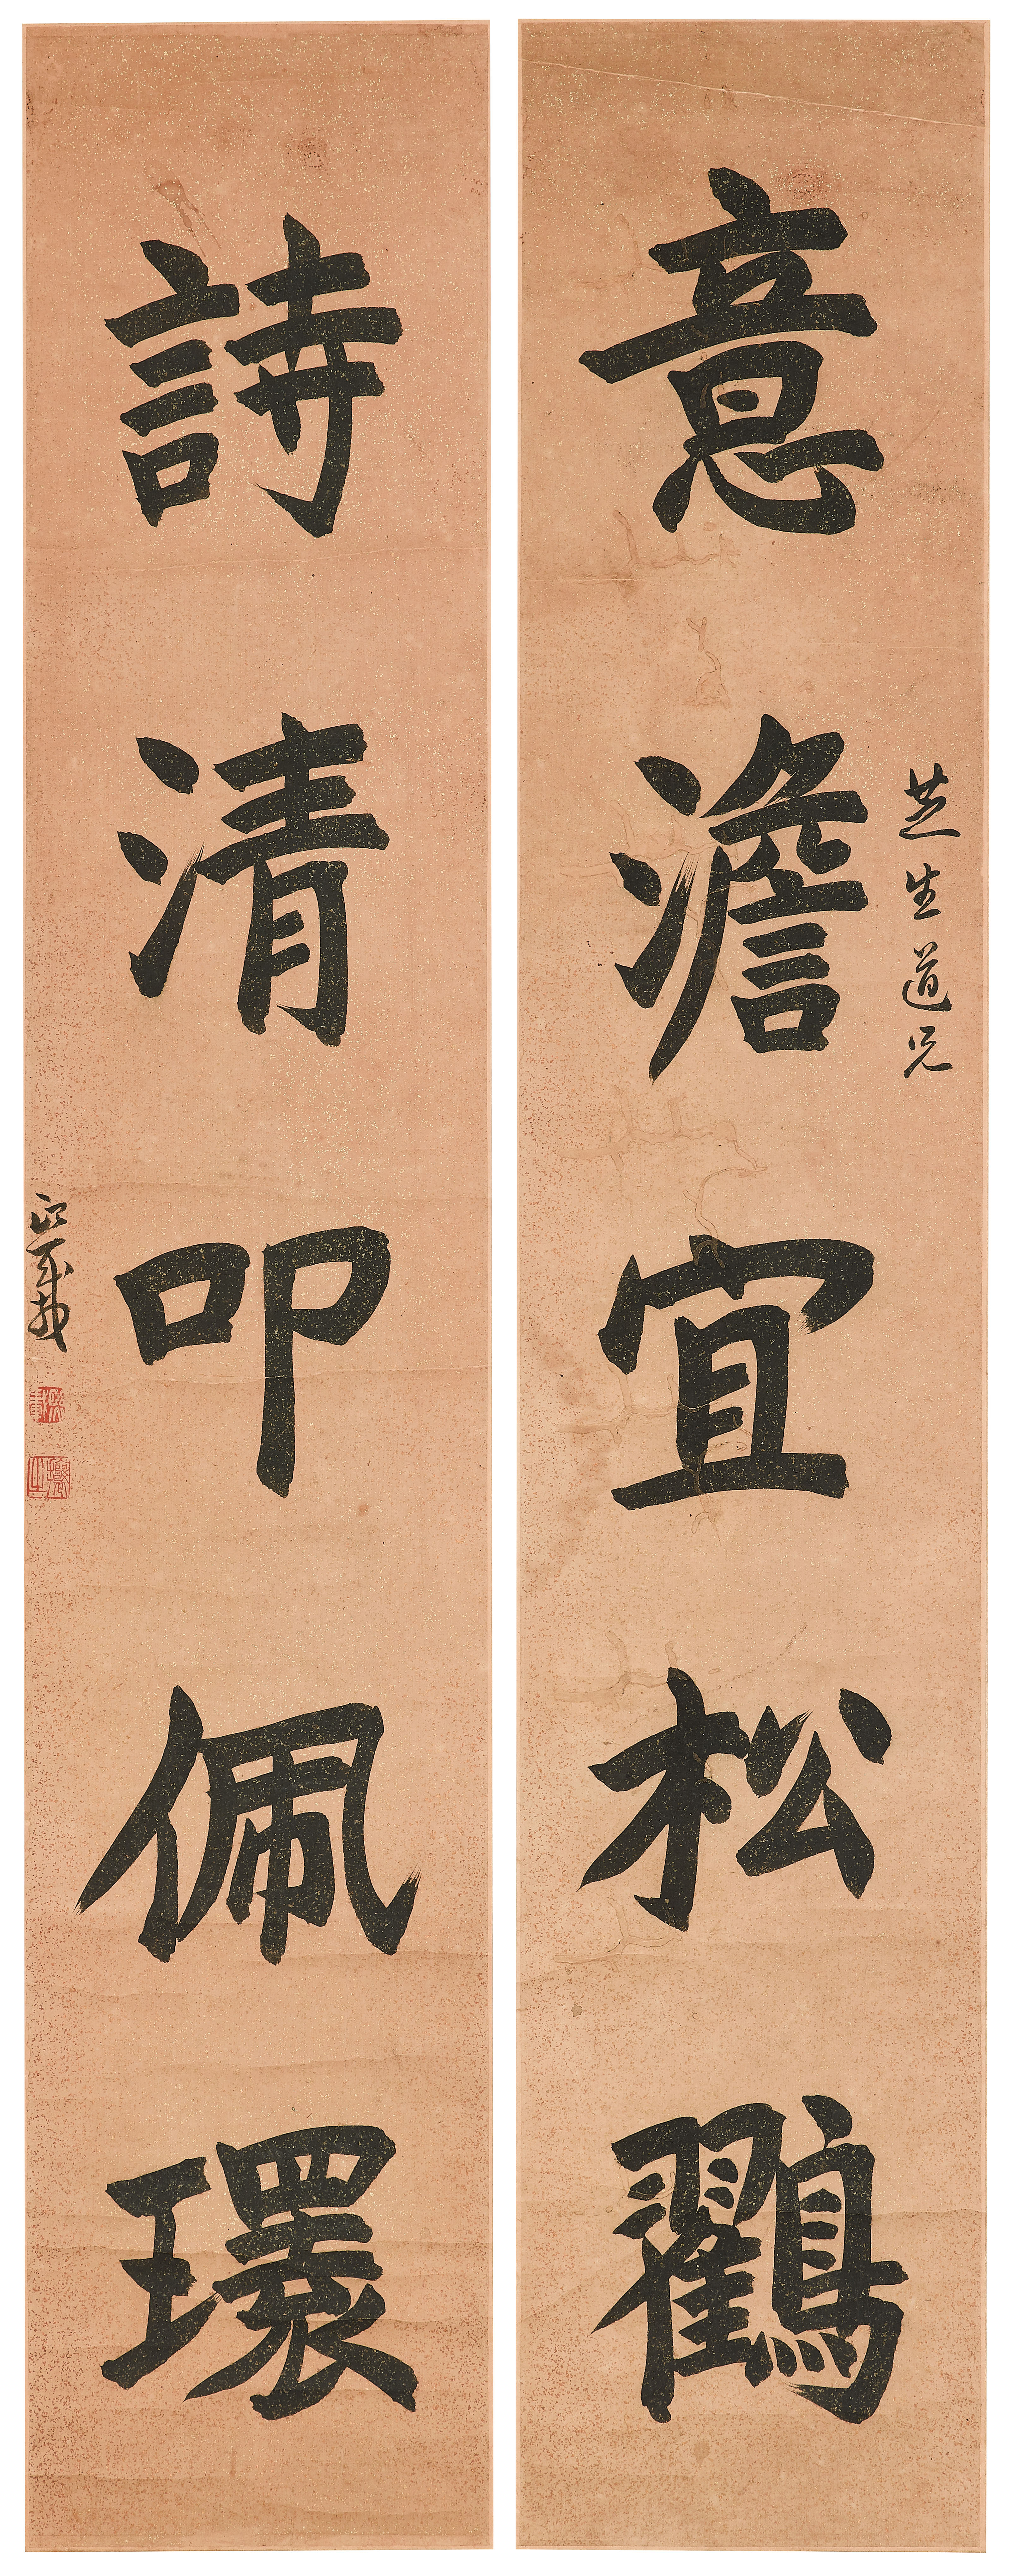 芝生道兄
意澹宜松鶴
詩清叩佩環